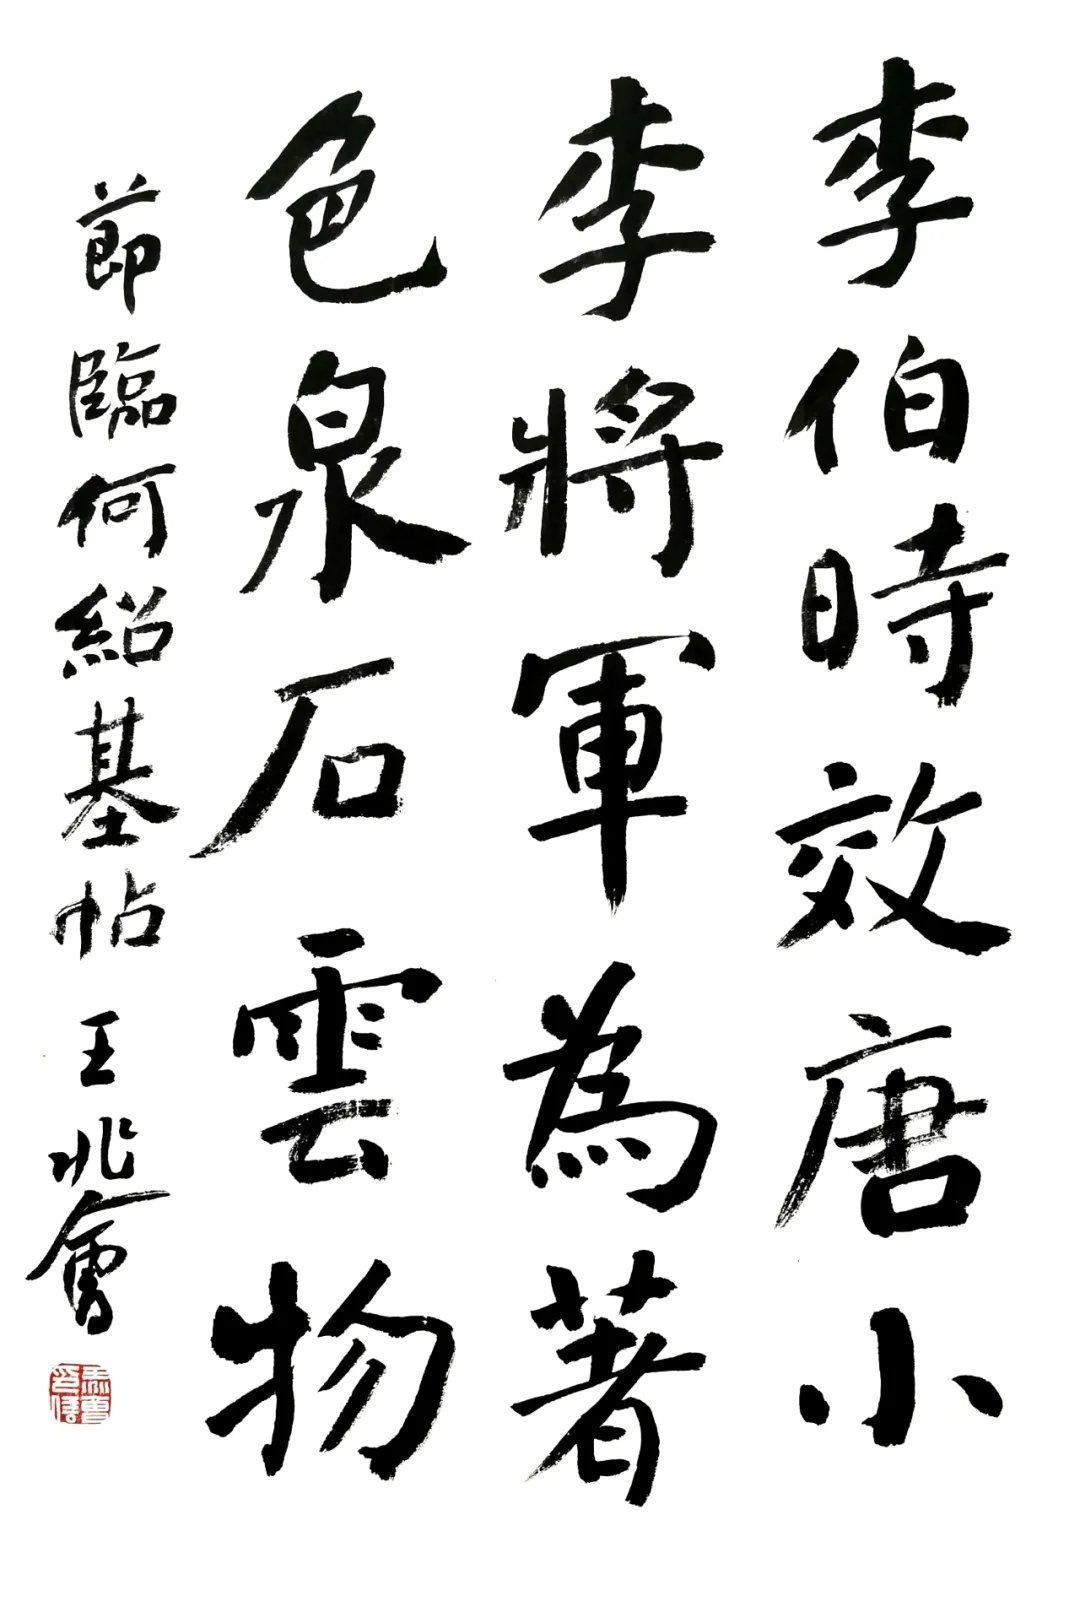 李伯時效唐小
李將軍為著
色泉石雲物
節臨何紹基帖 王兆會